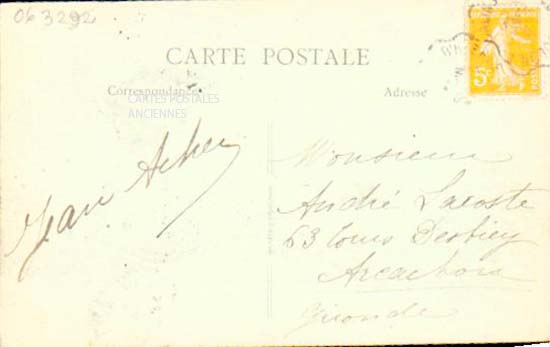 063292
CARTE POSTALE
Correspondance
Adresse
CARTES POSTALES
ANCIENNES
5c
Jean
Monsieur
André Lacoste
63 Cours Desbiey
Arcachon
Gironde